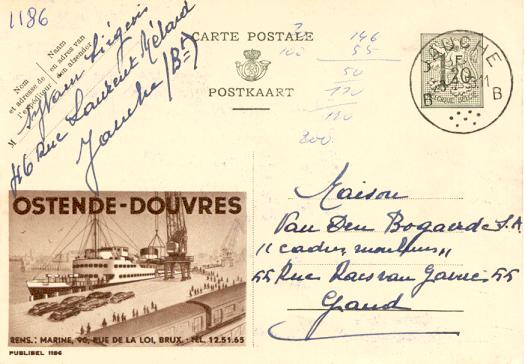 1186
CARTE POSTALE
POSTKAART
Nom
et adresse de
l'expéditeur
Naam
en adres van
den afzender
M Sylvain Liégeois
46 Rue Laurent Mélard
Jauche (Bt)
146
55
50
110
110
300
100
JAUCHE
11
B B
1F
20
BELGIQUE-BELGIË
Maison
Van Den Bogaerde S.A
"cadres moulures"
55 Rue Raes van Gavre 55
Gand
OSTENDE-DOUVRES
RENS.: MARINE, 90, RUE DE LA LOI, BRUX. - TEL. 12.51.65
PUBLIBEL 1186